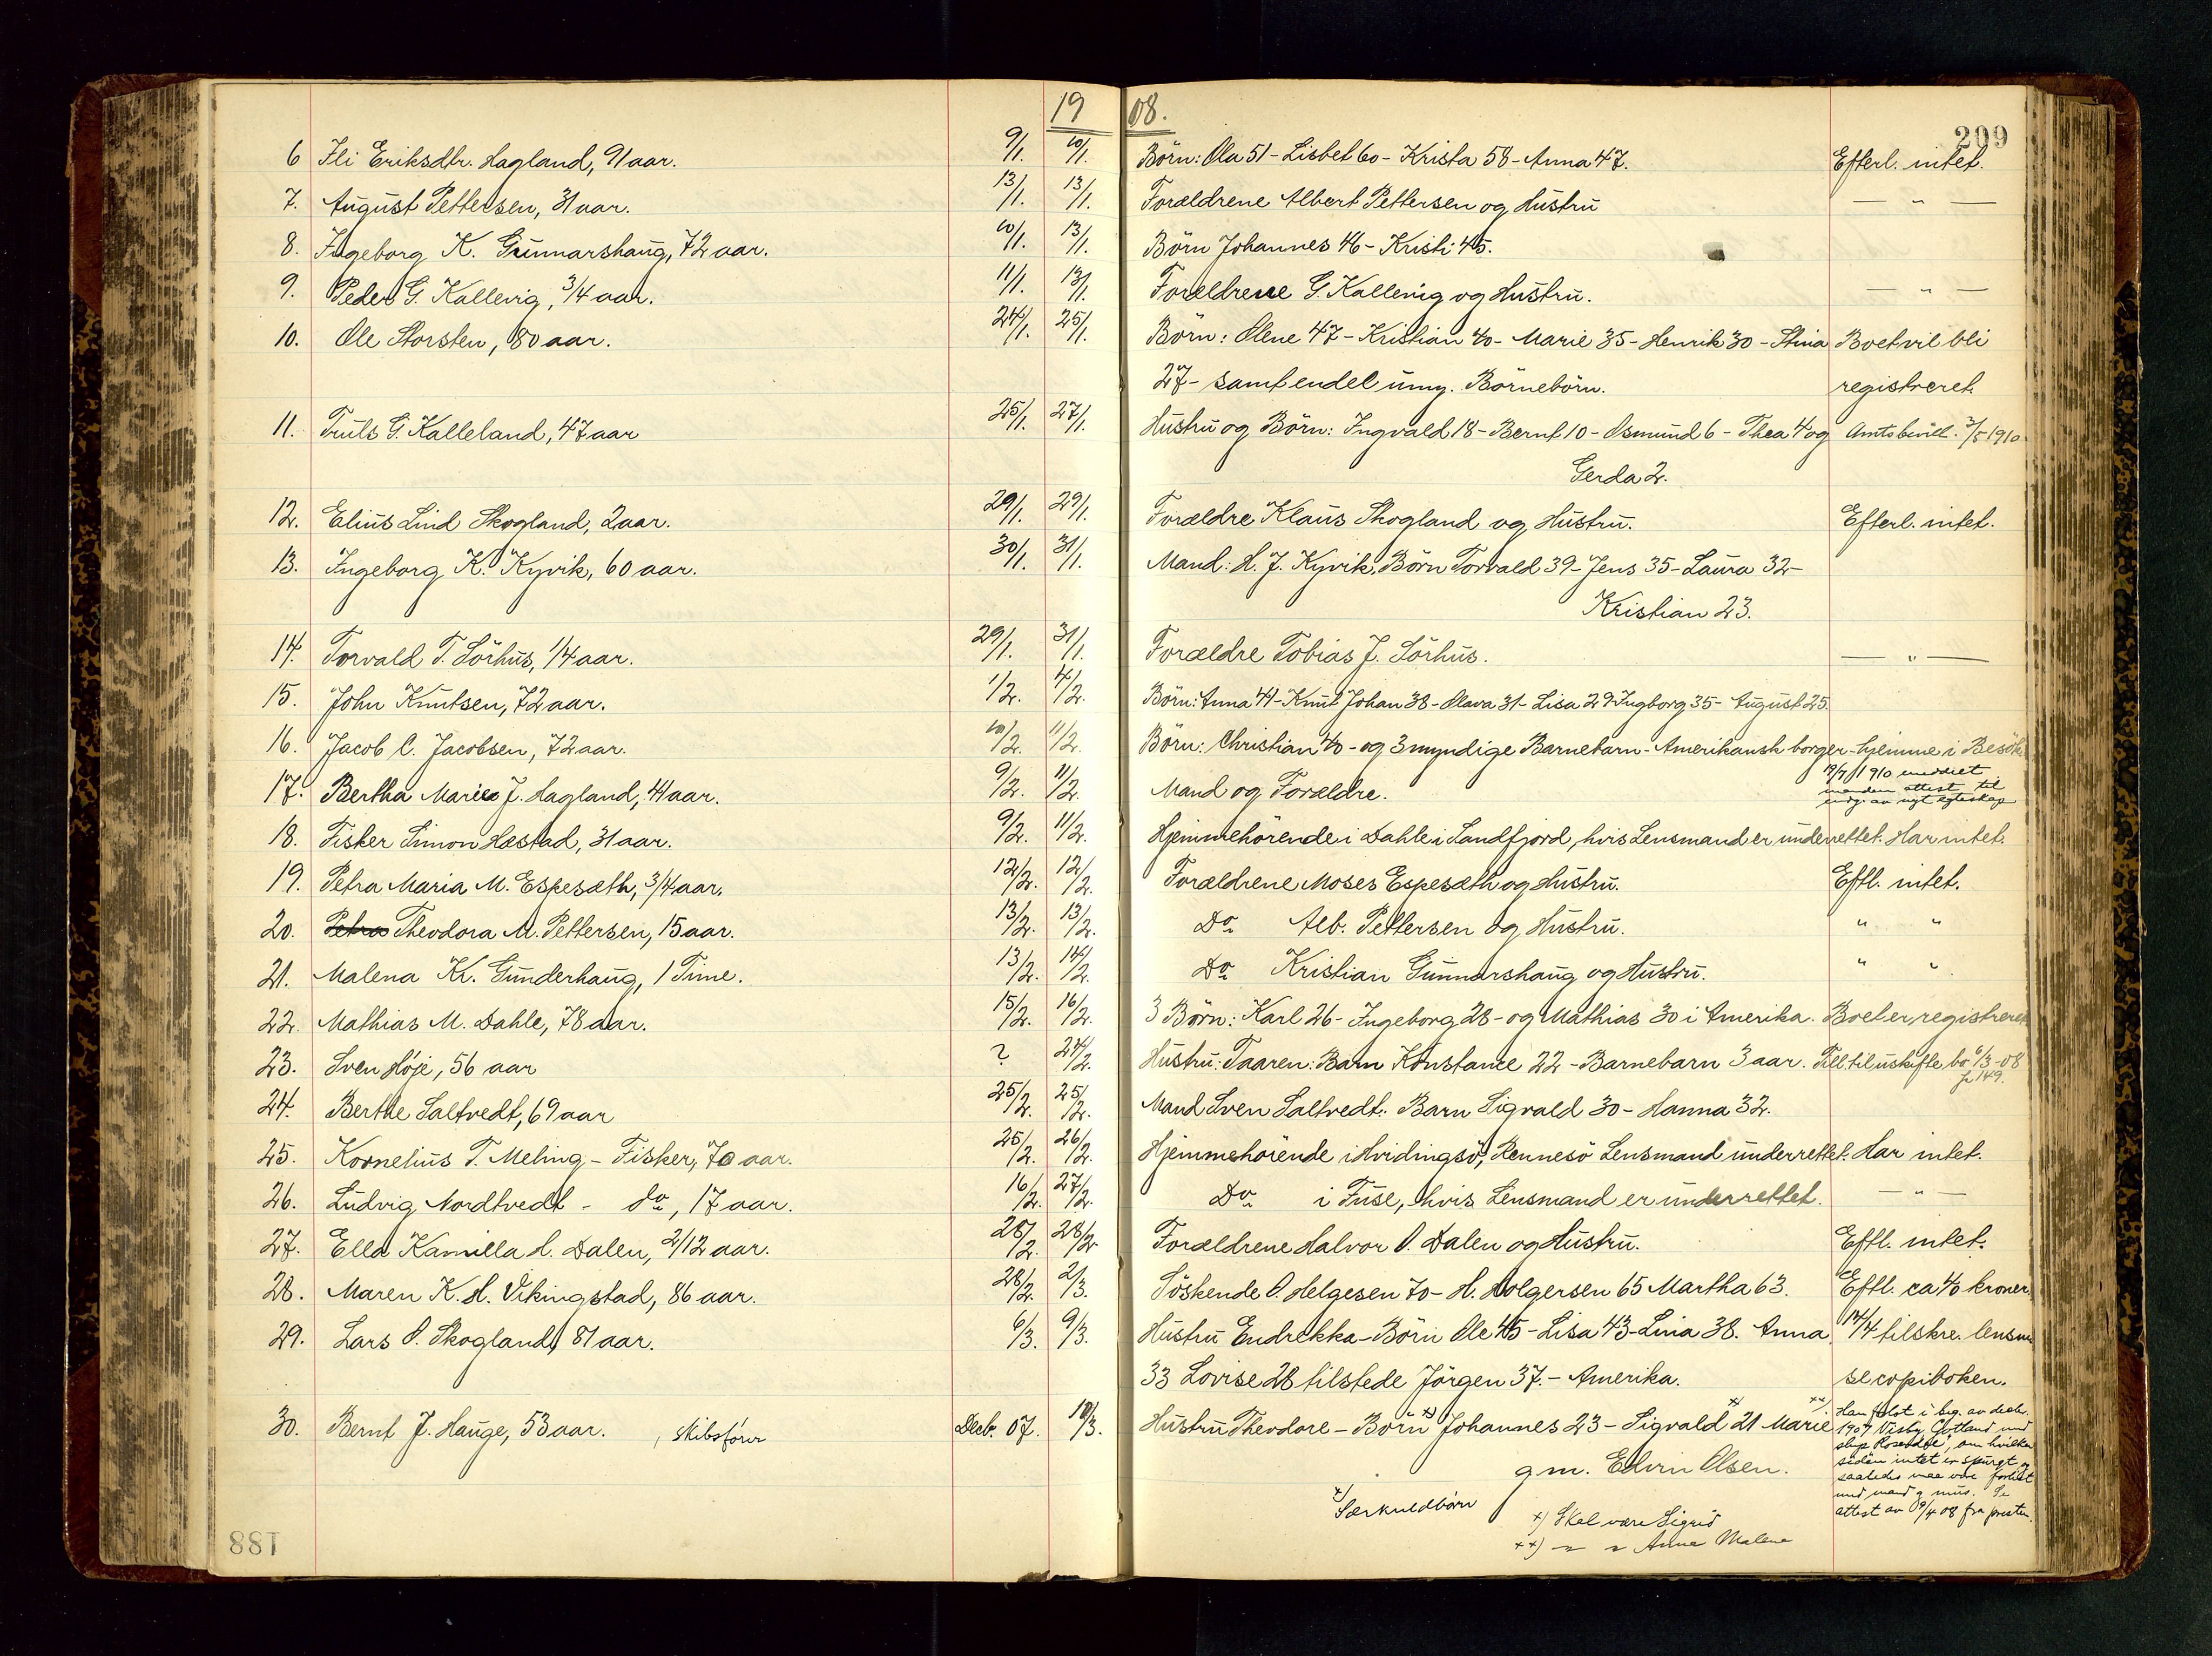 19 08.
209
6 Ili Eriksdtr. Hagland, 91 aar. 9/1. 10/1. Börn: Ola 51 - Lisbet 60 - Krista 58 - Anna 47. Efterl. intet.
7. August Pettersen, 31 aar. 13/1. 13/1. Forældrene Albert Pettersen og Hustru — " —
8. Ingeborg K. Gunnarshaug, 72 aar. 10/1. 13/1. Börn Johannes 46 - Kristi 45.
9. Peder G. Kallevig, 3/4 aar. 11/1. 13/1. Forældrene G. Kallevig og Hustru. — " —
10. Ole Storsten, 80 aar. 24/1. 25/1. Börn: Olene 47 - Kristian 40 - Marie 35 - Henrik 30 - Stina Boet vil bli
27 - samt endel umy. Börnebörn. registreret.
11. Truls G. Kalleland, 47 aar 25/1. 27/1. Hustru og Börn: Ingvald 18 - Bernt 10 - Osmund 6 - Thea 4 og Amtsbevill. 3/5 1910
Gerda 2.
12. Elius Lind Skogland, 2 aar. 29/1. 29/1. Forældre Klaus Skogland og Hustru. Efterl. intet.
13. Ingeborg K. Kyvik, 60 aar. 30/1. 31/1. Mand: H. J. Kyvik, Börn Torvald 39 - Jens 35 - Laura 32 -
Kristian 23.
14. Torvald T. Sörhus, 1/4 aar. 29/1. 31/1. Forældre Tobias J. Sörhus. — " —
15. John Knutsen, 72 aar. 1/2. 4/2. Börn: Anna 41 - Knut Johan 38 - Olava 31 - Lisa 29 Ingborg 35 - August 25.
16. Jacob C. Jacobsen, 72 aar. 10/2. 11/2. Börn: Christian 40 - og 3 myndige Barnebarn - Amerikansk borger - hjemme i Besök.
17. Bertha Marie J. Hagland, 41 aar. 9/2. 11/2. Mand og Forældre. 19/7 1910 meddelt
manden attest til
indg. av nyt egteskap
18. Fisker Simon Hæstad, 31 aar. 9/2. 11/2. Hjemmehörende i Dahle i Sandfjord, hvis Lensmand er underrettet. Har intet.
19. Petra Maria M. Espesæth, 3/4 aar. 12/2. 12/2. Forældrene Moses Espesæth og Hustru. Eftl. intet.
20. Petra Theodora M. Pettersen, 15 aar. 13/2. 13/2. Do Alb. Pettersen og Hustru. " "
21. Malena Kr. Gunderhaug, 1 Time. 13/2. 14/2. Do Kristian Gunnarshaug og Hustru. " "
22. Mathias M. Dahle, 78 aar. 15/2. 16/2. 3 Börn: Karl 26 - Ingeborg 28 - og Mathias 30 i Amerika. Boet er registreret
23. Sven Höje, 56 aar ? 24/2. Hustru: Taaren: Barn Konstance 22 - Barnebarn 3 aar. Till. til uskifte bo 6/3-08
f. 149.
24. Berthe Saltvedt, 69 aar 25/2. 25/2. Mand Sven Saltvedt: Barn Sigvald 30 - Hanna 32.
25. Kornelius T. Meling - Fisker, 70 aar. 25/2. 26/2. Hjemmehörende i Hvidingsö, Rennesö Lensmand underrettet. Har intet.
26. Ludvig Nordtvedt - do, 17 aar. 16/2. 27/2. Do i Fuse, hvis Lensmand er underrettet. — " —
27. Ella Kamilla H. Dalen, 2/12 aar. 28/2. 28/2. Forældrene Halvor O. Dalen og Hustru. Eftl. intet.
28. Maren K. H. Vikingstad, 86 aar. 28/2. 2/3. Söskende O. Helgesen 70 - H. Holgersen 65 Martha 63. Eftl. ca 40 kroner.
29. Lars O. Skogland, 81 aar. 6/3. 9/3. Hustru Endrekka - Börn Ole 45 - Lisa 43 - Lina 38. Anna 14/4 tilskre. lensm.
33 Lovise 28 tilstede Jörgen 37. - Amerika. se copiboken.
30. Bernt J. Hauge, 53 aar. , skibsförer Decb. 07. 10/3. Hustru Theodore - Börn x) Johannes 23 - Sigvald x) 21 Marie xx)
g m. Edvin Olsen.
Han forlot i beg. av decbr.
1907 Visby, Gotland med
slup "Rosendal", om hvilken
siden intet er spurgt og
saaledes maa være forlist
med mand g mus. Se
attest av 9/4 08 fra presten.
x) Særkuldbörn
x) Skal være Sigrid
xx) — " Anne Malene
188